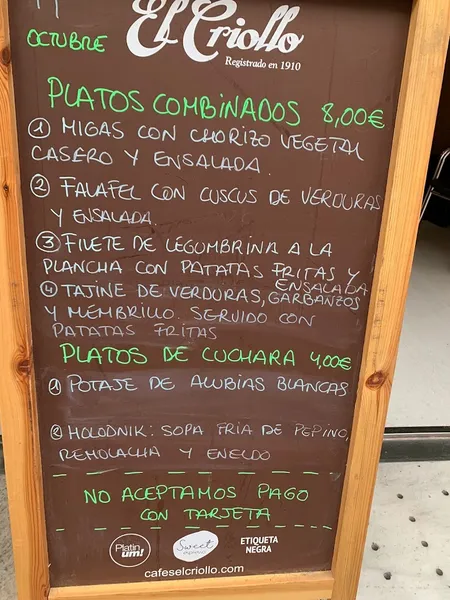 El Criollo
OCTUBRE
Registrado en 1910
PLATOS COMBINADOS 8,00€
① MIGAS CON CHORIZO VEGETAL
CASERO Y ENSALADA.
② FALAFEL CON CUSCUS DE VERDURAS
Y ENSALADA
③ FILETE DE LEGUMBRINA A LA
PLANCHA CON PATATAS FRITAS Y
ENSALADA
④ TAJINE DE VERDURAS, GARBANZOS
Y MEMBRILLO. SERVIDO CON
PATATAS FRITAS
PLATOS DE CUCHARA 4,00€
① POTAJE DE ALUBIAS BLANCAS
② HOLODNIK: SOPA FRIA DE PEPINO,
REMOLACHA Y ENELDO
NO ACEPTAMOS PAGO
CON TARJETA
Platin
um!
Sweet
ETIQUETA
NEGRA
cafeselcriollo.com